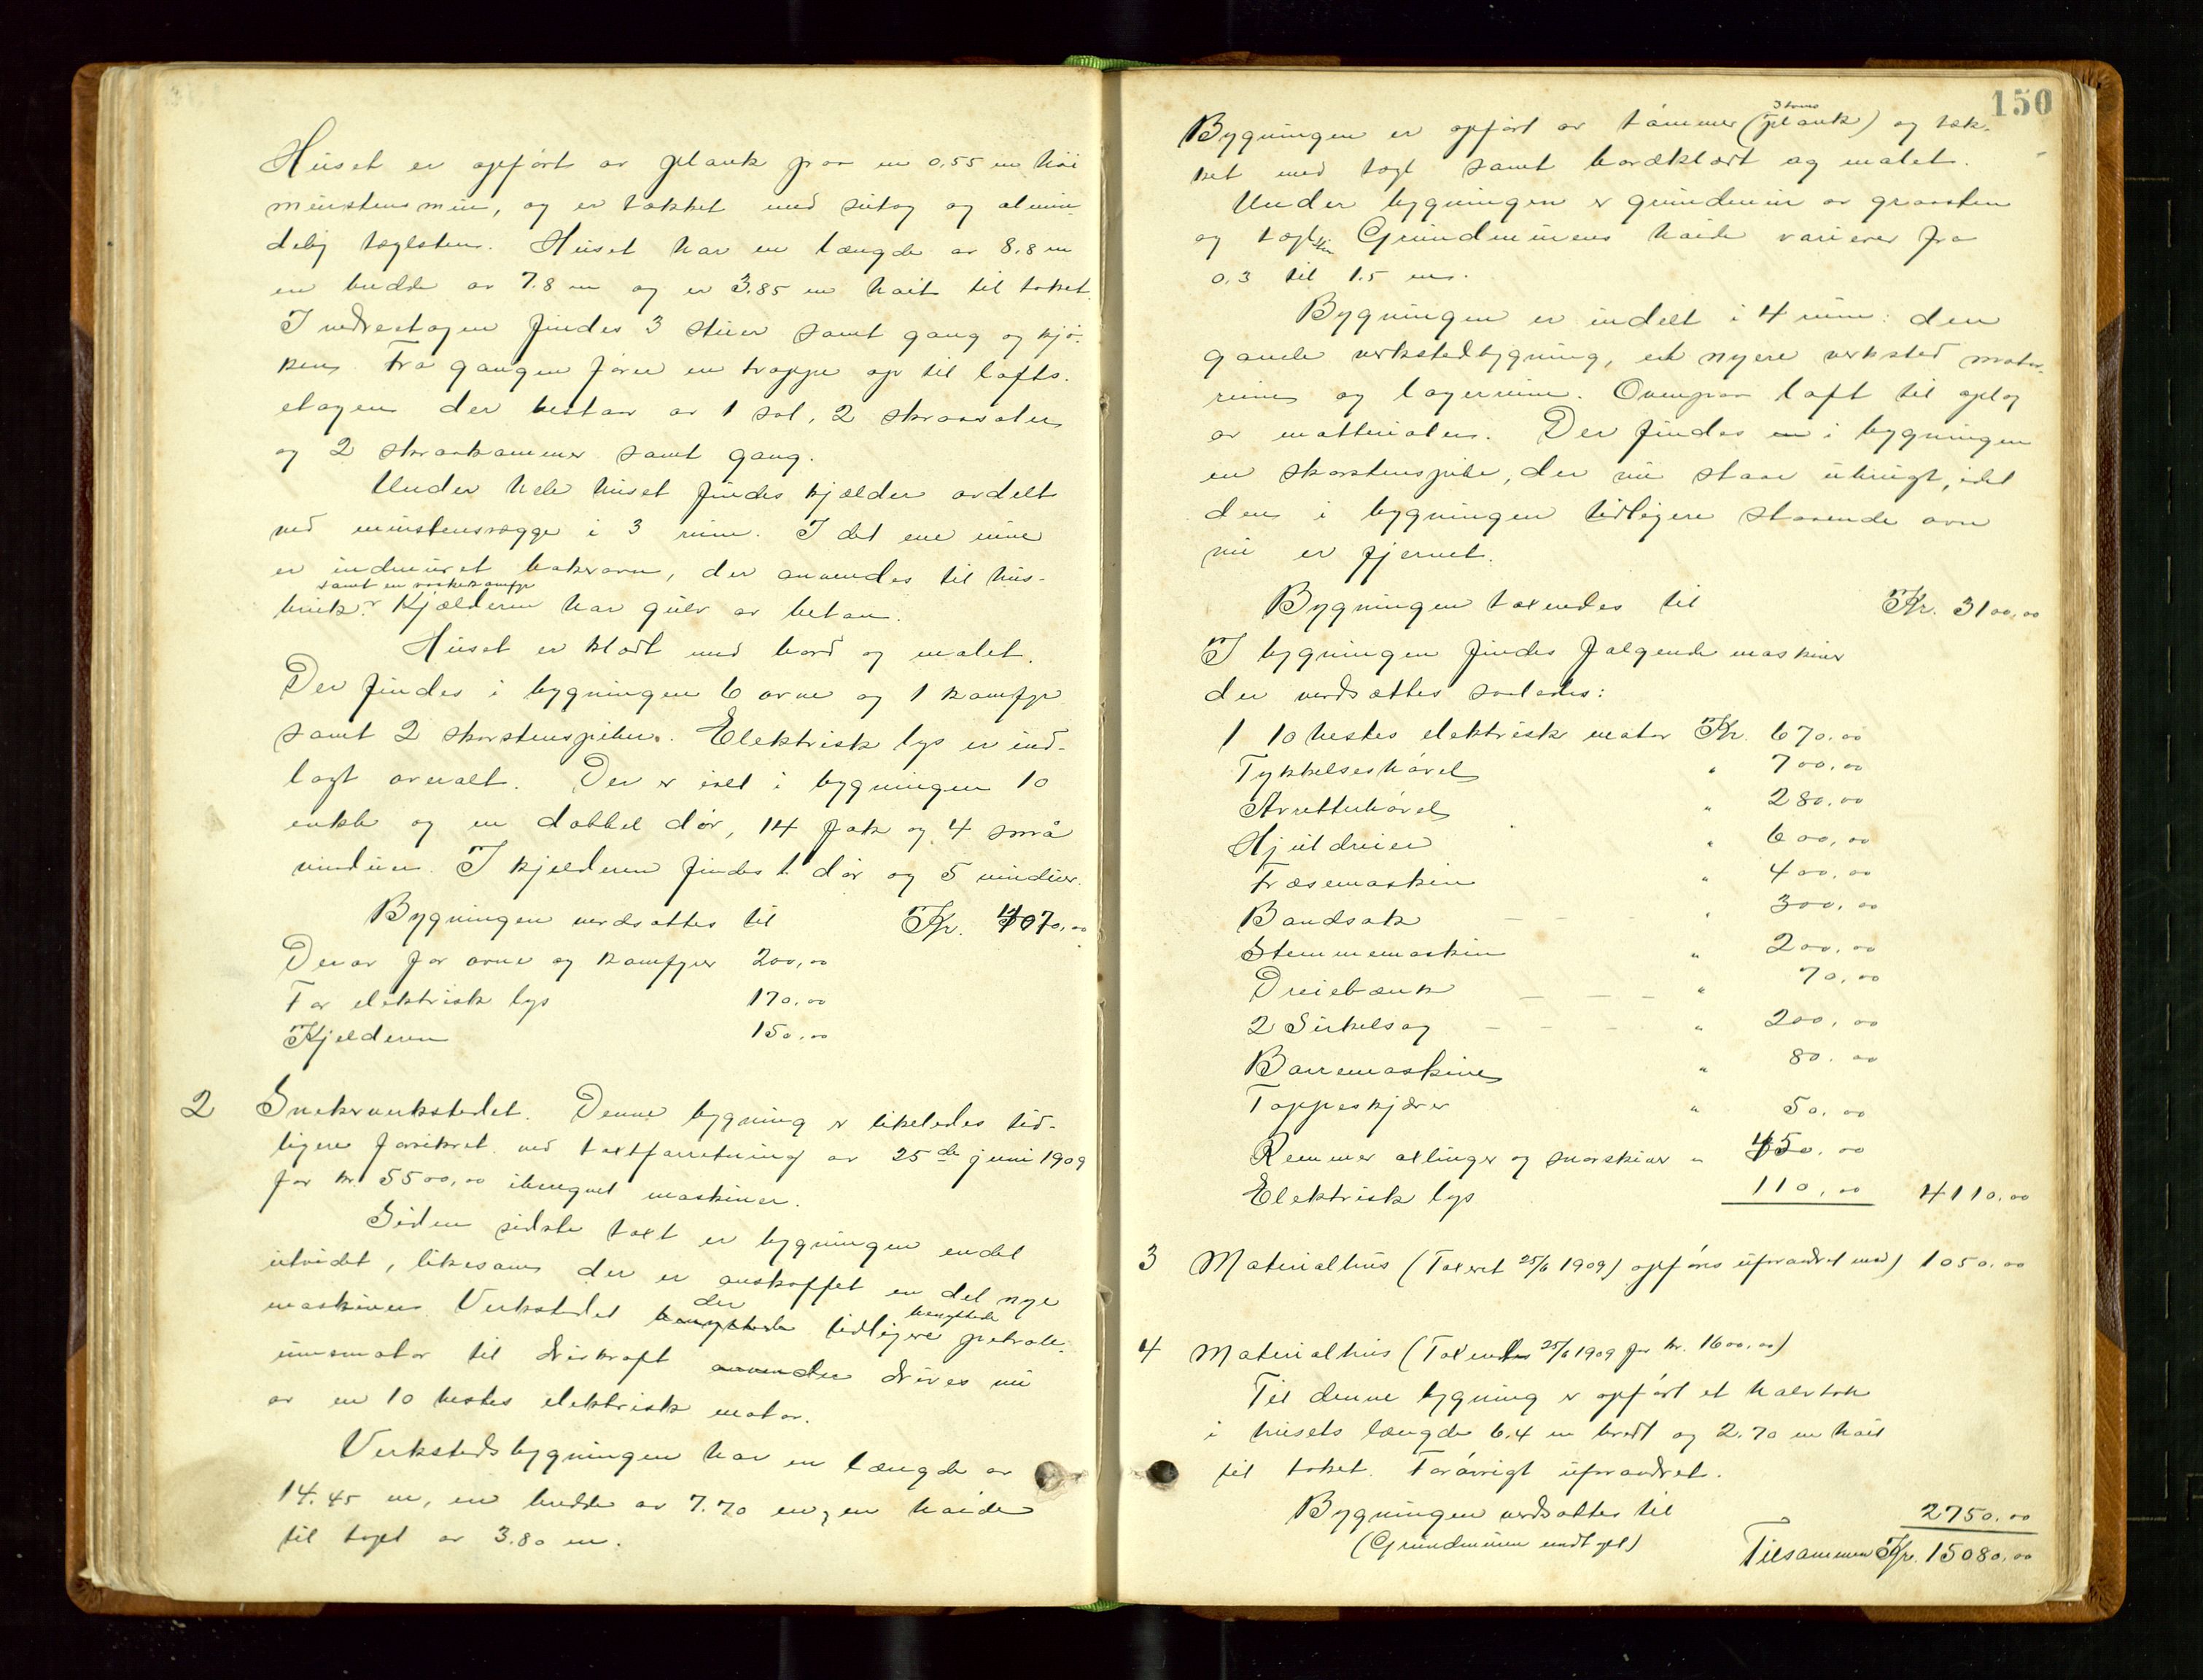 Huset er opført av plank paa en 0,55 m høi
murstensmur, og er tækket med sutag og almin-
delig taglsten. Huset har en længde av 8,8 m
en bredde av 7.8 m og er 3.85 m høit til taket.
I nedreetagen findes 3 stuer samt gang og kjø-
ken. Fra gangen fører en trappe op til lofts-
etagen der bestaar av 1 sal, 2 skraasaler
og 2 skraakammer samt gang.
Under hele huset findes kjælder avdelt
ved murstensvægge i 3 rum. I det ene rum
er indmuret bakerovn, der anvendes til hus-
samt en vaskekomfyr
bruk. Kjælderen har gulv av beton.
Huset er klædt med bord og malet.
Der findes i bygningen 6 ovne og 1 komfyr
samt 2 skorstenspiber. Elektrisk lys er ind-
lagt overalt. Der er ialt i bygningen 10
enkle og en dobbel dør, 14 fak og 4 små
vinduer. I kjelderen findes 1 dør og 5 vinduer.
Bygningen verdsættes til Kr. 4070,00
Derav for ovne og komfyrer 200,00
For elektrisk lys 170.00
Kjelderen 150.00
2 Snekerverkstedet. Denne bygning er likeledes tid-
ligere forsikret ved taxtforretning av 25de juni 1909
for kr. 5500,00 iberegnet maskiner.
Siden sidste taxt er bygningen endel
utvidet, likesom der er anskaffet en del nye
maskiner. Verkstedet benyttede der tidligere benyttede petrole-
umsmotor til drivkraft anvendes drives nu
av en 10 hestes elektrisk motor.
Verkstedsbygningen har en længde av
14.45 m, en bredde av 7.70 m, en høide
til taget av 3.80 m.
150
Bygningen er opført av tømmer (3 toms plank) og tæk-
ket med tagl samt bordklædt og malet.
Under bygningen er grundmur av graasten
og taglsten Grundmurens høide varierer fra
0.3 til 1.5 m.
Bygningen er indelt i 4 rum: den
gamle verkstedbygning, et nyere verksted motor-
rum og lagerrum. Ovenpaa loft til oplag
av matterialer. Der findes en i bygningen
en skorstenspibe, der nu staar ubrugt, idet
den i bygningen tidligere staaende ovn
nu er fjernet.
Bygningen taxeres til Kr. 3100,00
I bygningen findes følgende maskiner
der verdsættes saaledes:
1 10 hestes elektrisk motor Kr. 670.00
Tykkelseshøvel " 700.00
Avretterhøvel " 280.00
Hjuldreier " 600,00
Fræsemaskin " 400.00
Bandsak " 300.00
Stemmemaskin " 200.00
Dreiebænk " 70.00
2 Sirkelsag " 200.00
Borremaskine " 80.00
Tappeskjærer " 50.00
Remmer axlinger og snorskiver " 450.00
Elektrisk lys 110.00 4110.00
3 Materialhus (Taxeret 25/6 1909) opføres uforandret med) 1050.00
4 Materialhus (Taxeret 25/6 1909 for kr. 1600.00)
Til denne bygning er opført et halvtak
i husets længde 6.4 m bredt og 2.70 m høit
til taket. Forøvrigt uforandret.
Bygningen verdsættes til 2750.00
(Grundmuren undtat) Tilsammen Kr. 15080.00